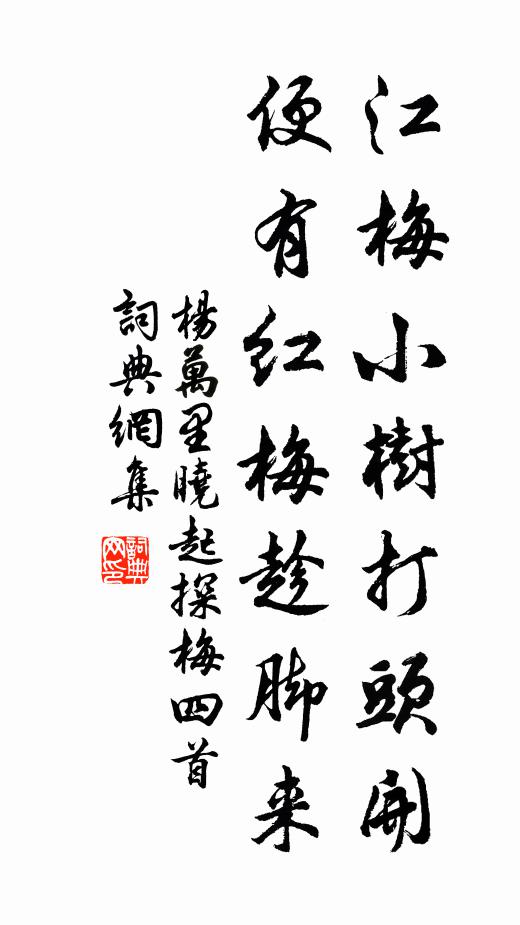 江梅小樹打頭開
便有紅梅趁脚来
楊萬里曉起探梅四首
詞典網集
詞典网印